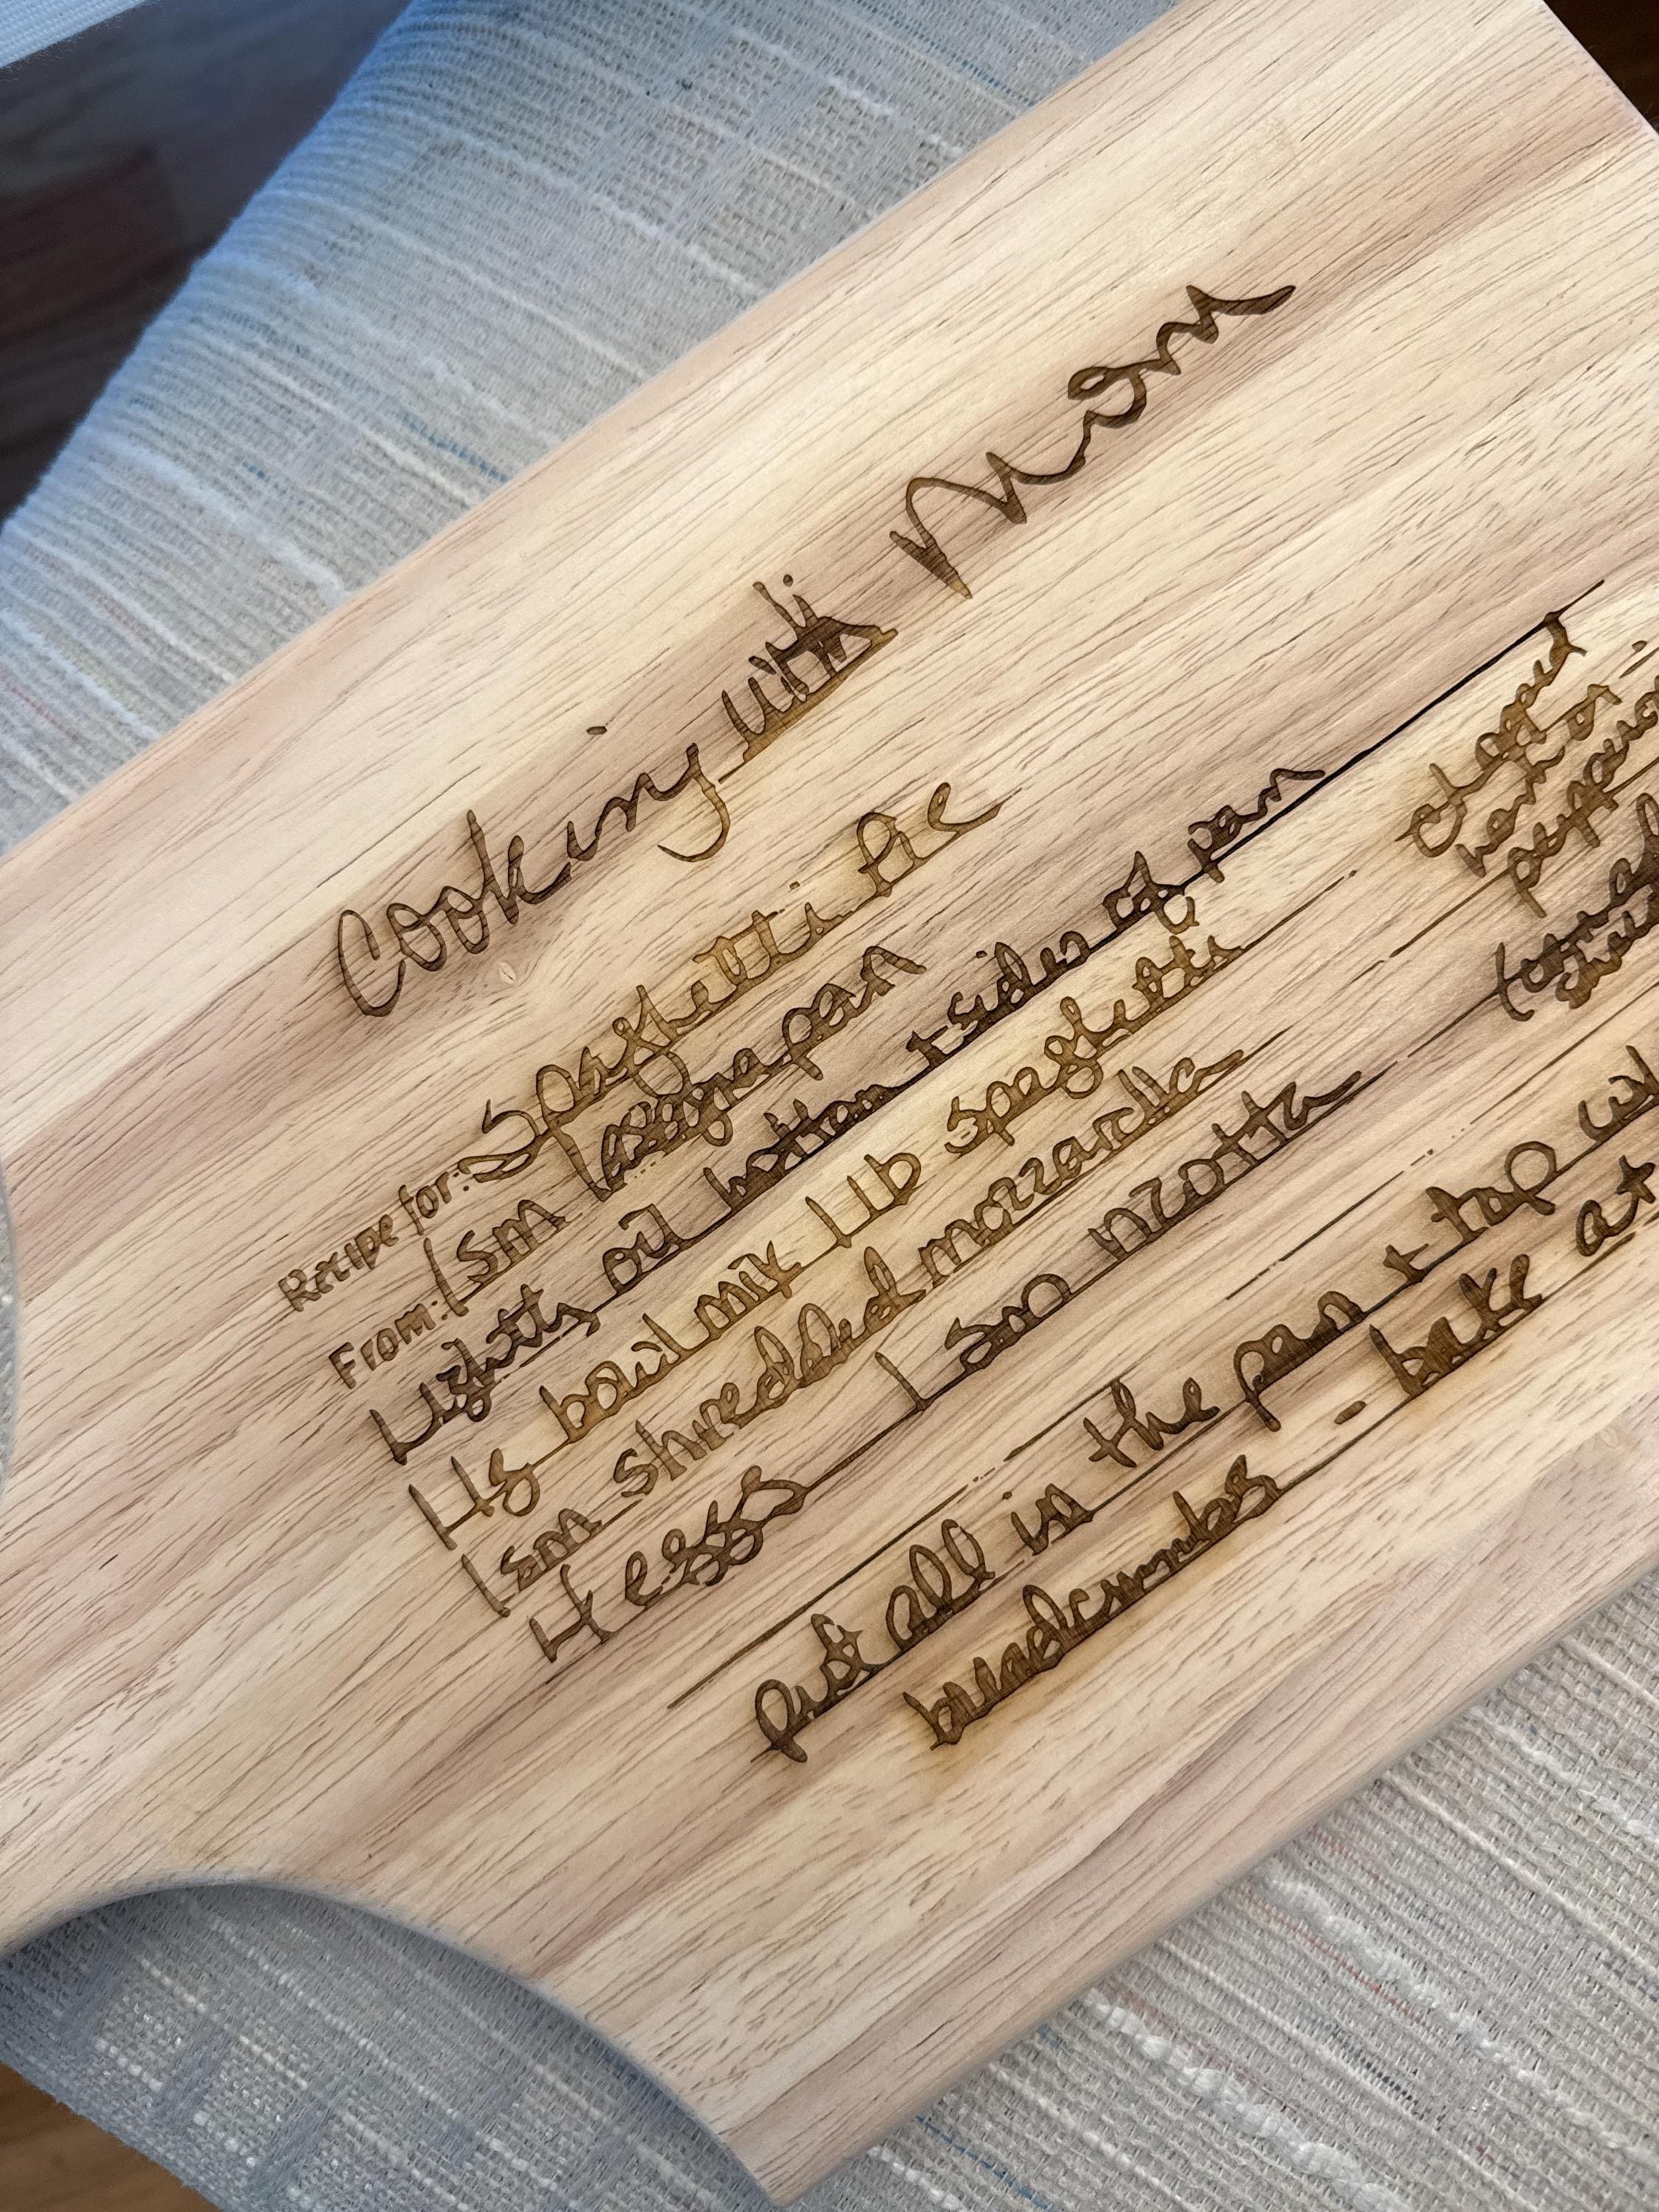 Cooking with Mom
Recipe for: Spaghetti Pie
From: 1 sm lasagna pan
Lightly oil bottom + sides of pan
Lg bowl mix 1 lb spaghetti
1 sm shredded mozzarella
4 eggs 1 sm ricotta
chopped
ham or
put all in the pan + top
breadcrumbs - bake at